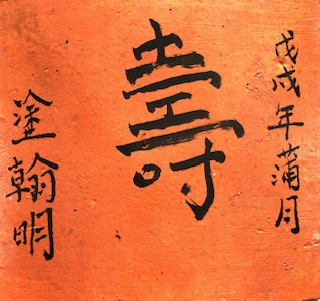 戊戌年蒲月
壽
塗翰明